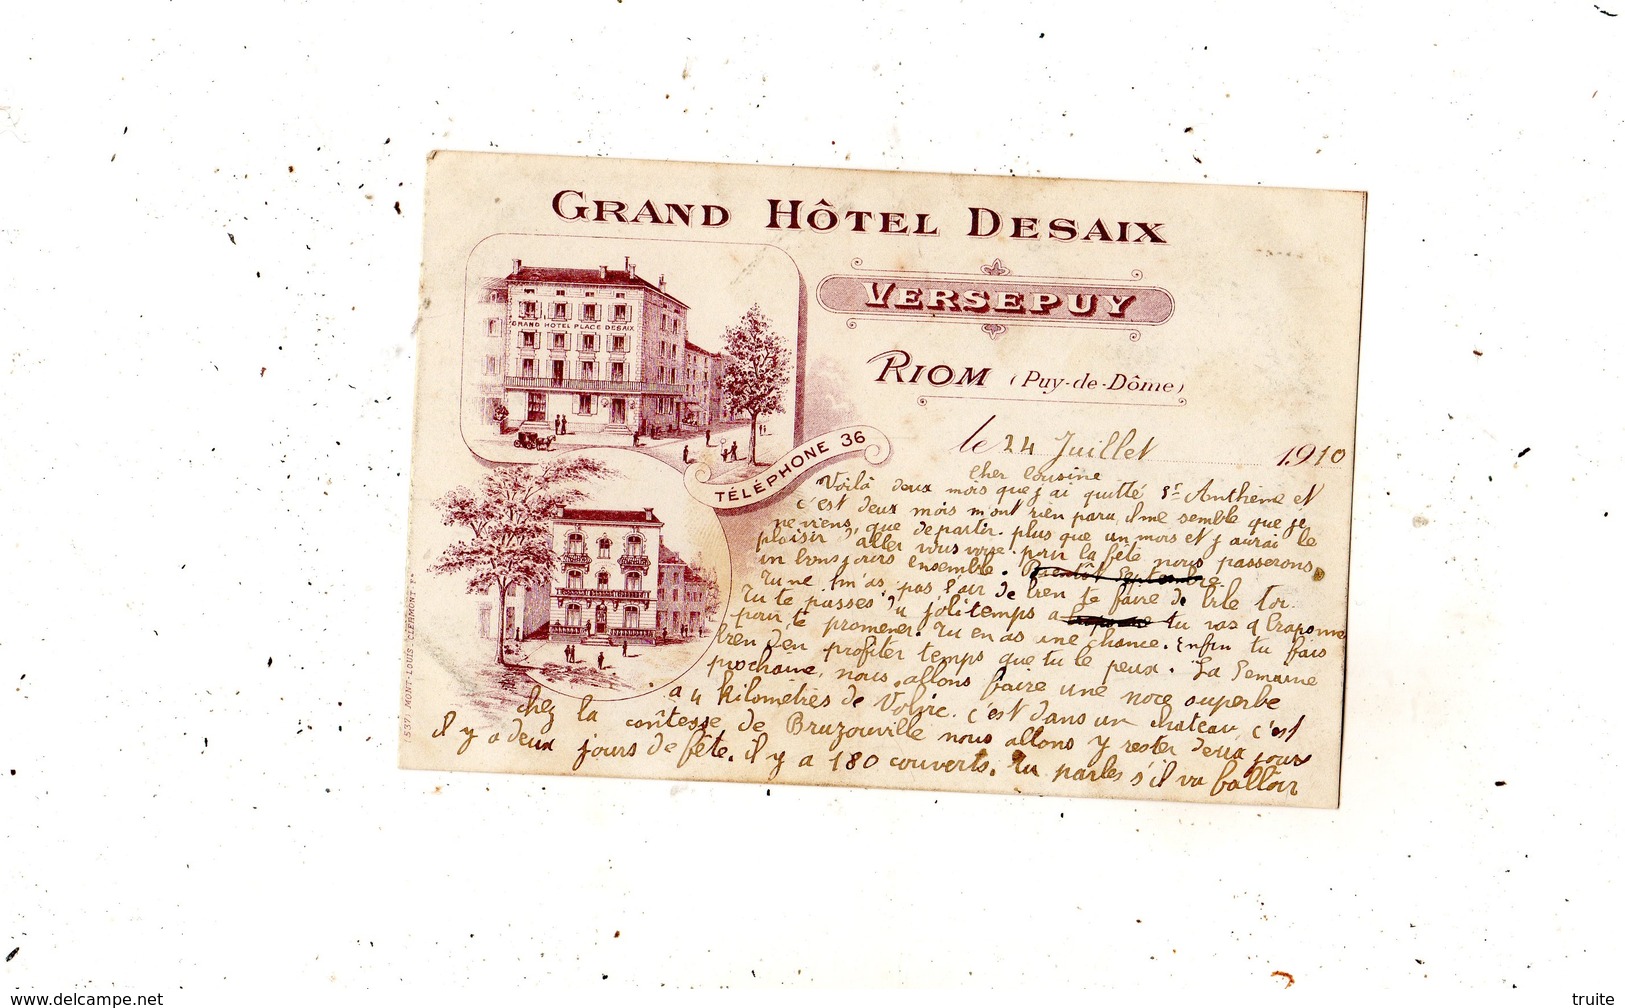 GRAND HÔTEL DESAIX
VERSEPUY
RIOM (Puy-de-Dôme)
GRAND HOTEL PLACE DESAIX
TÉLÉPHONE 36
le 24 Juillet 1910
cher cousine
Voilà deux mois que j'ai quitté St Anthème et
c'est deux mois m'ont rien paru, il me semble que je
ne viens, que de partir. plus que un mois et j'aurai le
plaisir d'aller vous voire. pour la fête nous passerons
un bons jours ensemble. Bientôt Septembre.
Tu ne m'as, pas l'air de bien te faire de bile toi.
Tu te passes du joli temps a tu vas a Craponne
pour te promener. Tu en as une chance. Enfin tu fais
bien d'en profiter temps que tu le peux. La Semaine
prochaine, nous, allons faire une noce superbe
a 4 kilomètres de Volvic. c'est dans un chateau, c'est
chez la contesse de Bruzouville nous allons y rester deux jours
il y a deux jours de fête. il y a 180 couverts. Tu parles s'il va falloir
1537. MONT-LOUIS. CLERMONT Fd
www.delcampe.net
truite